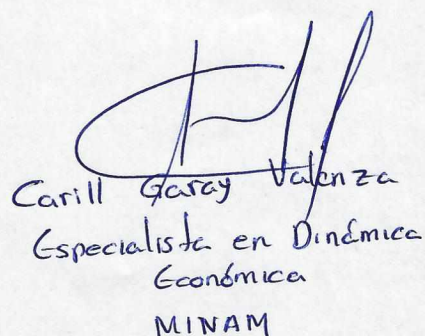 Carill Garay Valenza
Especialista en Dinámica
Económica
MINAM